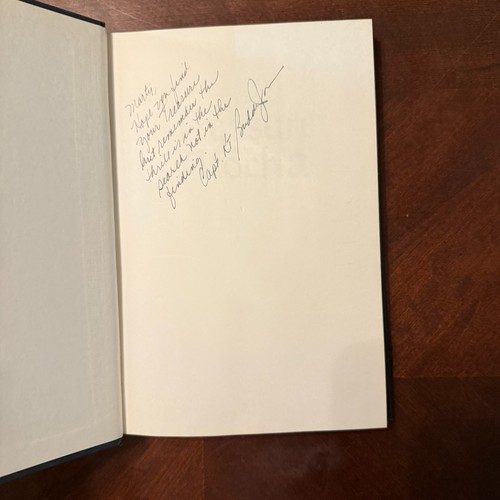 Marty,
Hope you find
your treasure
but remember the
thrill is in the
search not in the
finding.
Capt.